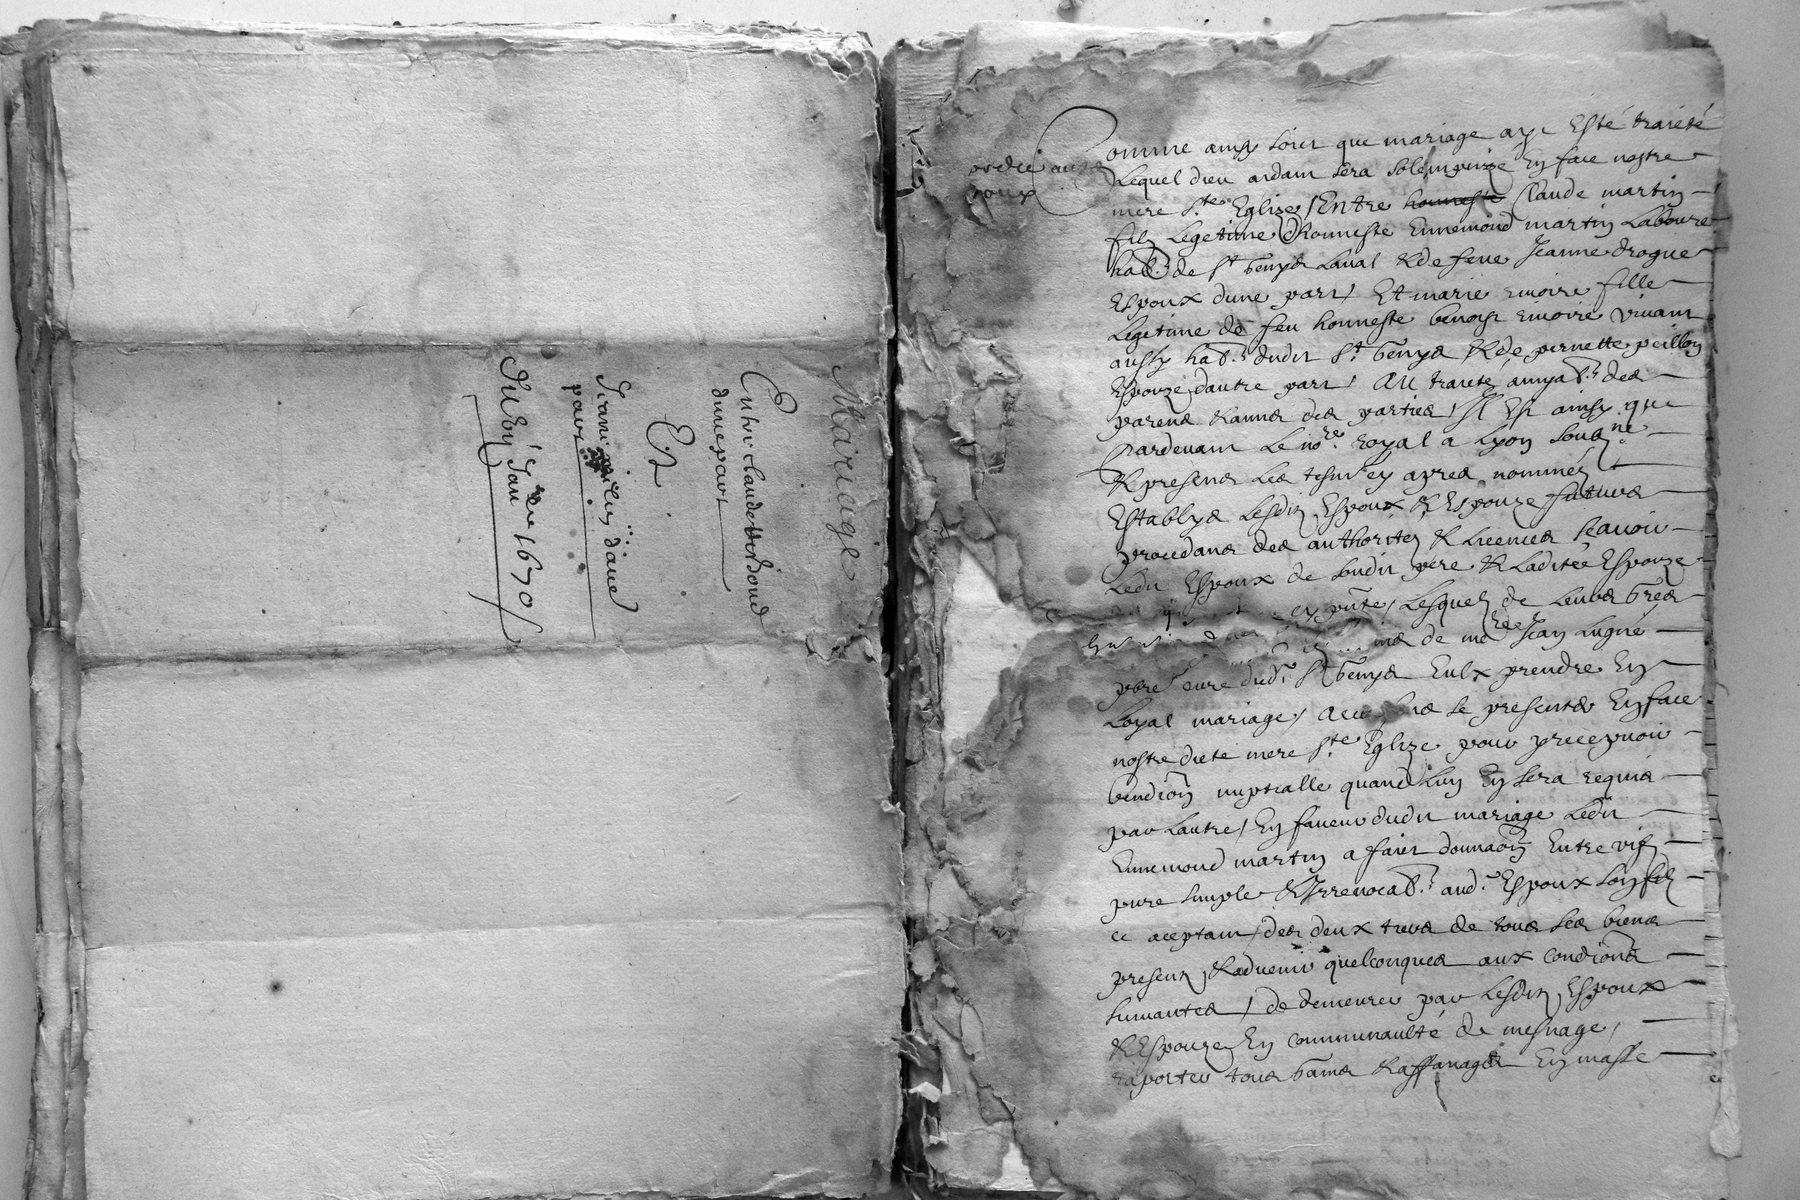 Mariage
Entre claude
dune part
Et
Jeanne dautre
part
Du 6e Jan 1670
expedié aux
espoux
Comme ainsy soict que mariage aye Esté traicté
Lequel dieu aidant sera solempnizé En face nostre
mere Ste Eglize, Entre honneste Claude martin
filz Legetime dhonneste Ennemond martin Laboure
hab. de St Genys Laual & de feue Jeanne drogue
Espoux dune part, Et marie fille
Legetime de feu honneste benoist viuant
aussy hab. dudit St Genys & de pernette peillon
Espouze dautre part, Au traicté amyab. des
parens & amis des parties, Il Est ainsy que
Pardeuant Le nore royal a Lyon soubzne
& presens Les tesm. ey apres nommez
Establys Lesditz Espoux & Espouze futurs
procedans des authoritez & Licences scauoir
Ledit Espoux de sondit pere & Laditte Espouze
ey pnte, Lesquelz de Leurs Grés
de me Jean Lugné
pbre cure dudt St Genys Eulx prendre En
Loyal mariage, se presenter En face
nostre dicte mere Ste Eglize pour precepuoir
bendion nuptialle quand Lun En sera requis
par Lautre, En faueur dudit mariage Ledit
Ennemond martin a faict donnaon Entre vifz
pure simple & Irreuocab. audt Espoux son filz
ce aceptant, des deux tiers de tous ses biens
presentz & aduenir quelconques aux condions
suiuantes, de demeurer par Lesditz Espoux
& Espouze En communaulté de mesnage,
raporter tous Gains & affanages En masse